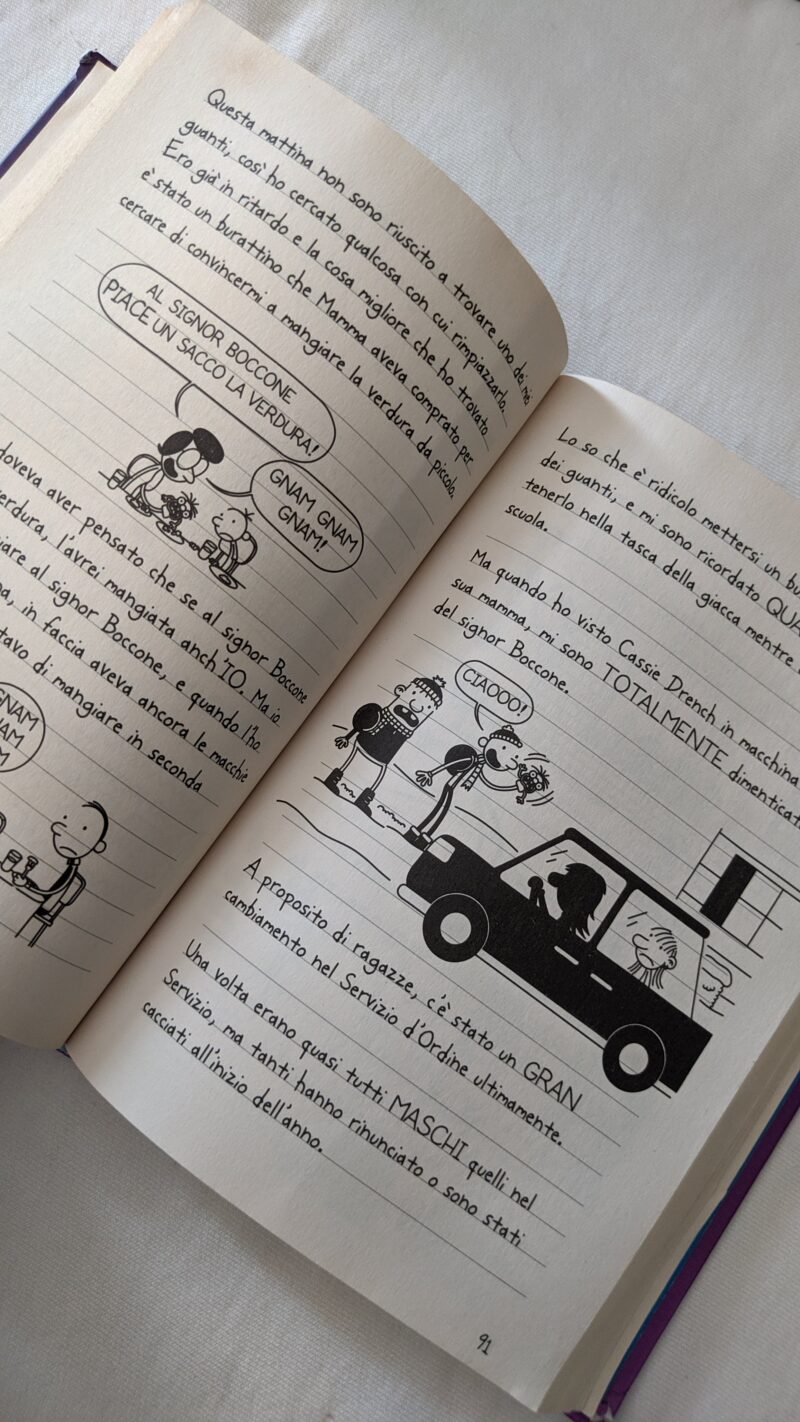 Questa mattina non sono riuscito a trovare uno dei miei
guanti, così ho cercato qualcosa con cui rimpiazzarlo.
Ero già in ritardo e la cosa migliore che ho trovato
è stato un burattino che Mamma aveva comprato per
cercare di convincermi a mangiare la verdura da piccolo.
AL SIGNOR BOCCONE
PIACE UN SACCO LA VERDURA!
GNAM GNAM
GNAM!
doveva aver pensato che se al signor Boccone
verdura, l'avrei mangiata anch'IO. Ma io
al signor Boccone, e quando l'ho
in faccia aveva ancora le macchie
di mangiare in seconda
GNAM
Lo so che è ridicolo mettersi un
dei guanti, e mi sono ricordato
tenerlo nella tasca della giacca mentre
scuola.
Ma quando ho visto Cassie Drench in macchina
sua mamma, mi sono TOTALMENTE
del signor Boccone.
CIAOOO!
A proposito di ragazze, c'è stato un GRAN
cambiamento nel Servizio d'Ordine ultimamente.
Una volta erano quasi tutti MASCHI quelli nel
Servizio, ma tanti hanno rinunciato o sono stati
cacciati all'inizio dell'anno.
91